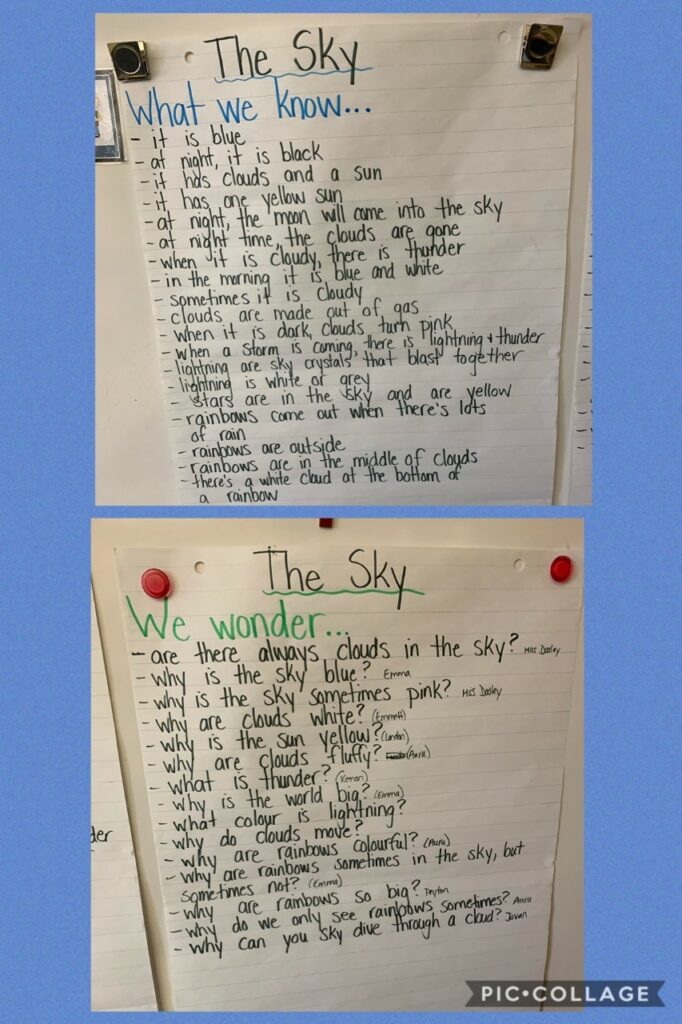 The Sky
What we know...
- it is blue
- at night, it is black
- it has clouds and a sun
- it has one yellow sun
- at night, the moon will come into the sky
- at night time, the clouds are gone
- when it is cloudy, there is thunder
- in the morning it is blue and white
- sometimes it is cloudy
- clouds are made out of gas
- when it is dark, clouds turn pink
- when a storm is coming, there is lightning + thunder
- lightning are sky crystals that blast together
- lightning is white or grey
- stars are in the sky and are yellow
- rainbows come out when there's lots
of rain
- rainbows are outside
- rainbows are in the middle of clouds
- there's a white cloud at the bottom of
a rainbow
The Sky
We wonder...
- are there always clouds in the sky? Miss Dasley
- why is the sky blue? Emma
- why is the sky sometimes pink? Miss Dasley
- why are clouds white? (Emmett)
- why is the sun yellow? (Landon)
- why are clouds fluffy?
- what is thunder? (Kenan)
- why is the world big? (Emma)
- what colour is lightning?
- why do clouds move?
- why are rainbows colourful?
- why are rainbows sometimes in the sky, but
sometimes not? (Emma)
- why are rainbows so big? Peyton
- why do we only see rainbows sometimes?
- why can you sky dive through a cloud?
der
PIC•COLLAGE